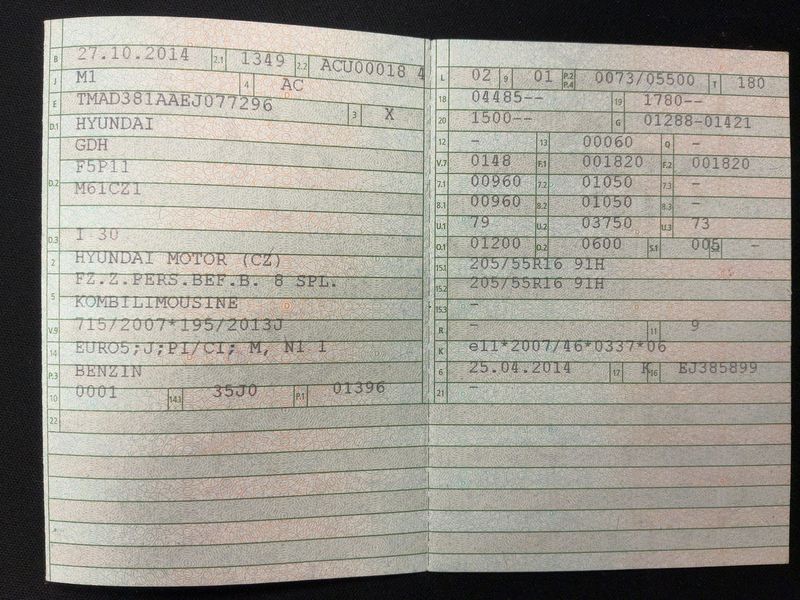 B 27.10.2014 2.1 1349 2.2 ACU00018 4
J M1 4 AC
E TMAD381AAEJ077296 3 X
D.1 HYUNDAI
D.2 GDH
F5P11
M61CZ1
D.3 I 30
2 HYUNDAI MOTOR (CZ)
5 FZ.Z.PERS.BEF.B. 8 SPL.
KOMBILIMOUSINE
V.9 715/2007*195/2013J
14 EURO5;J;PI/CI; M, N1 I
P.3 BENZIN
10 0001 14.1 35J0 P.1 01396
22
L 02 9 01 P.2 P.4 0073/05500 T 180
18 04485-- 19 1780--
20 1500-- G 01288-01421
12 - 13 00060 Q -
V.7 0148 F.1 001820 F.2 001820
7.1 00960 7.2 01050 7.3 -
8.1 00960 8.2 01050 8.3 -
U.1 79 U.2 03750 U.3 73
O.1 01200 O.2 0600 S.1 005 -
15.1 205/55R16 91H
15.2 205/55R16 91H
15.3 -
R - 11 9
K e11*2007/46*0337*06
6 25.04.2014 17 K 16 EJ385899
21 -